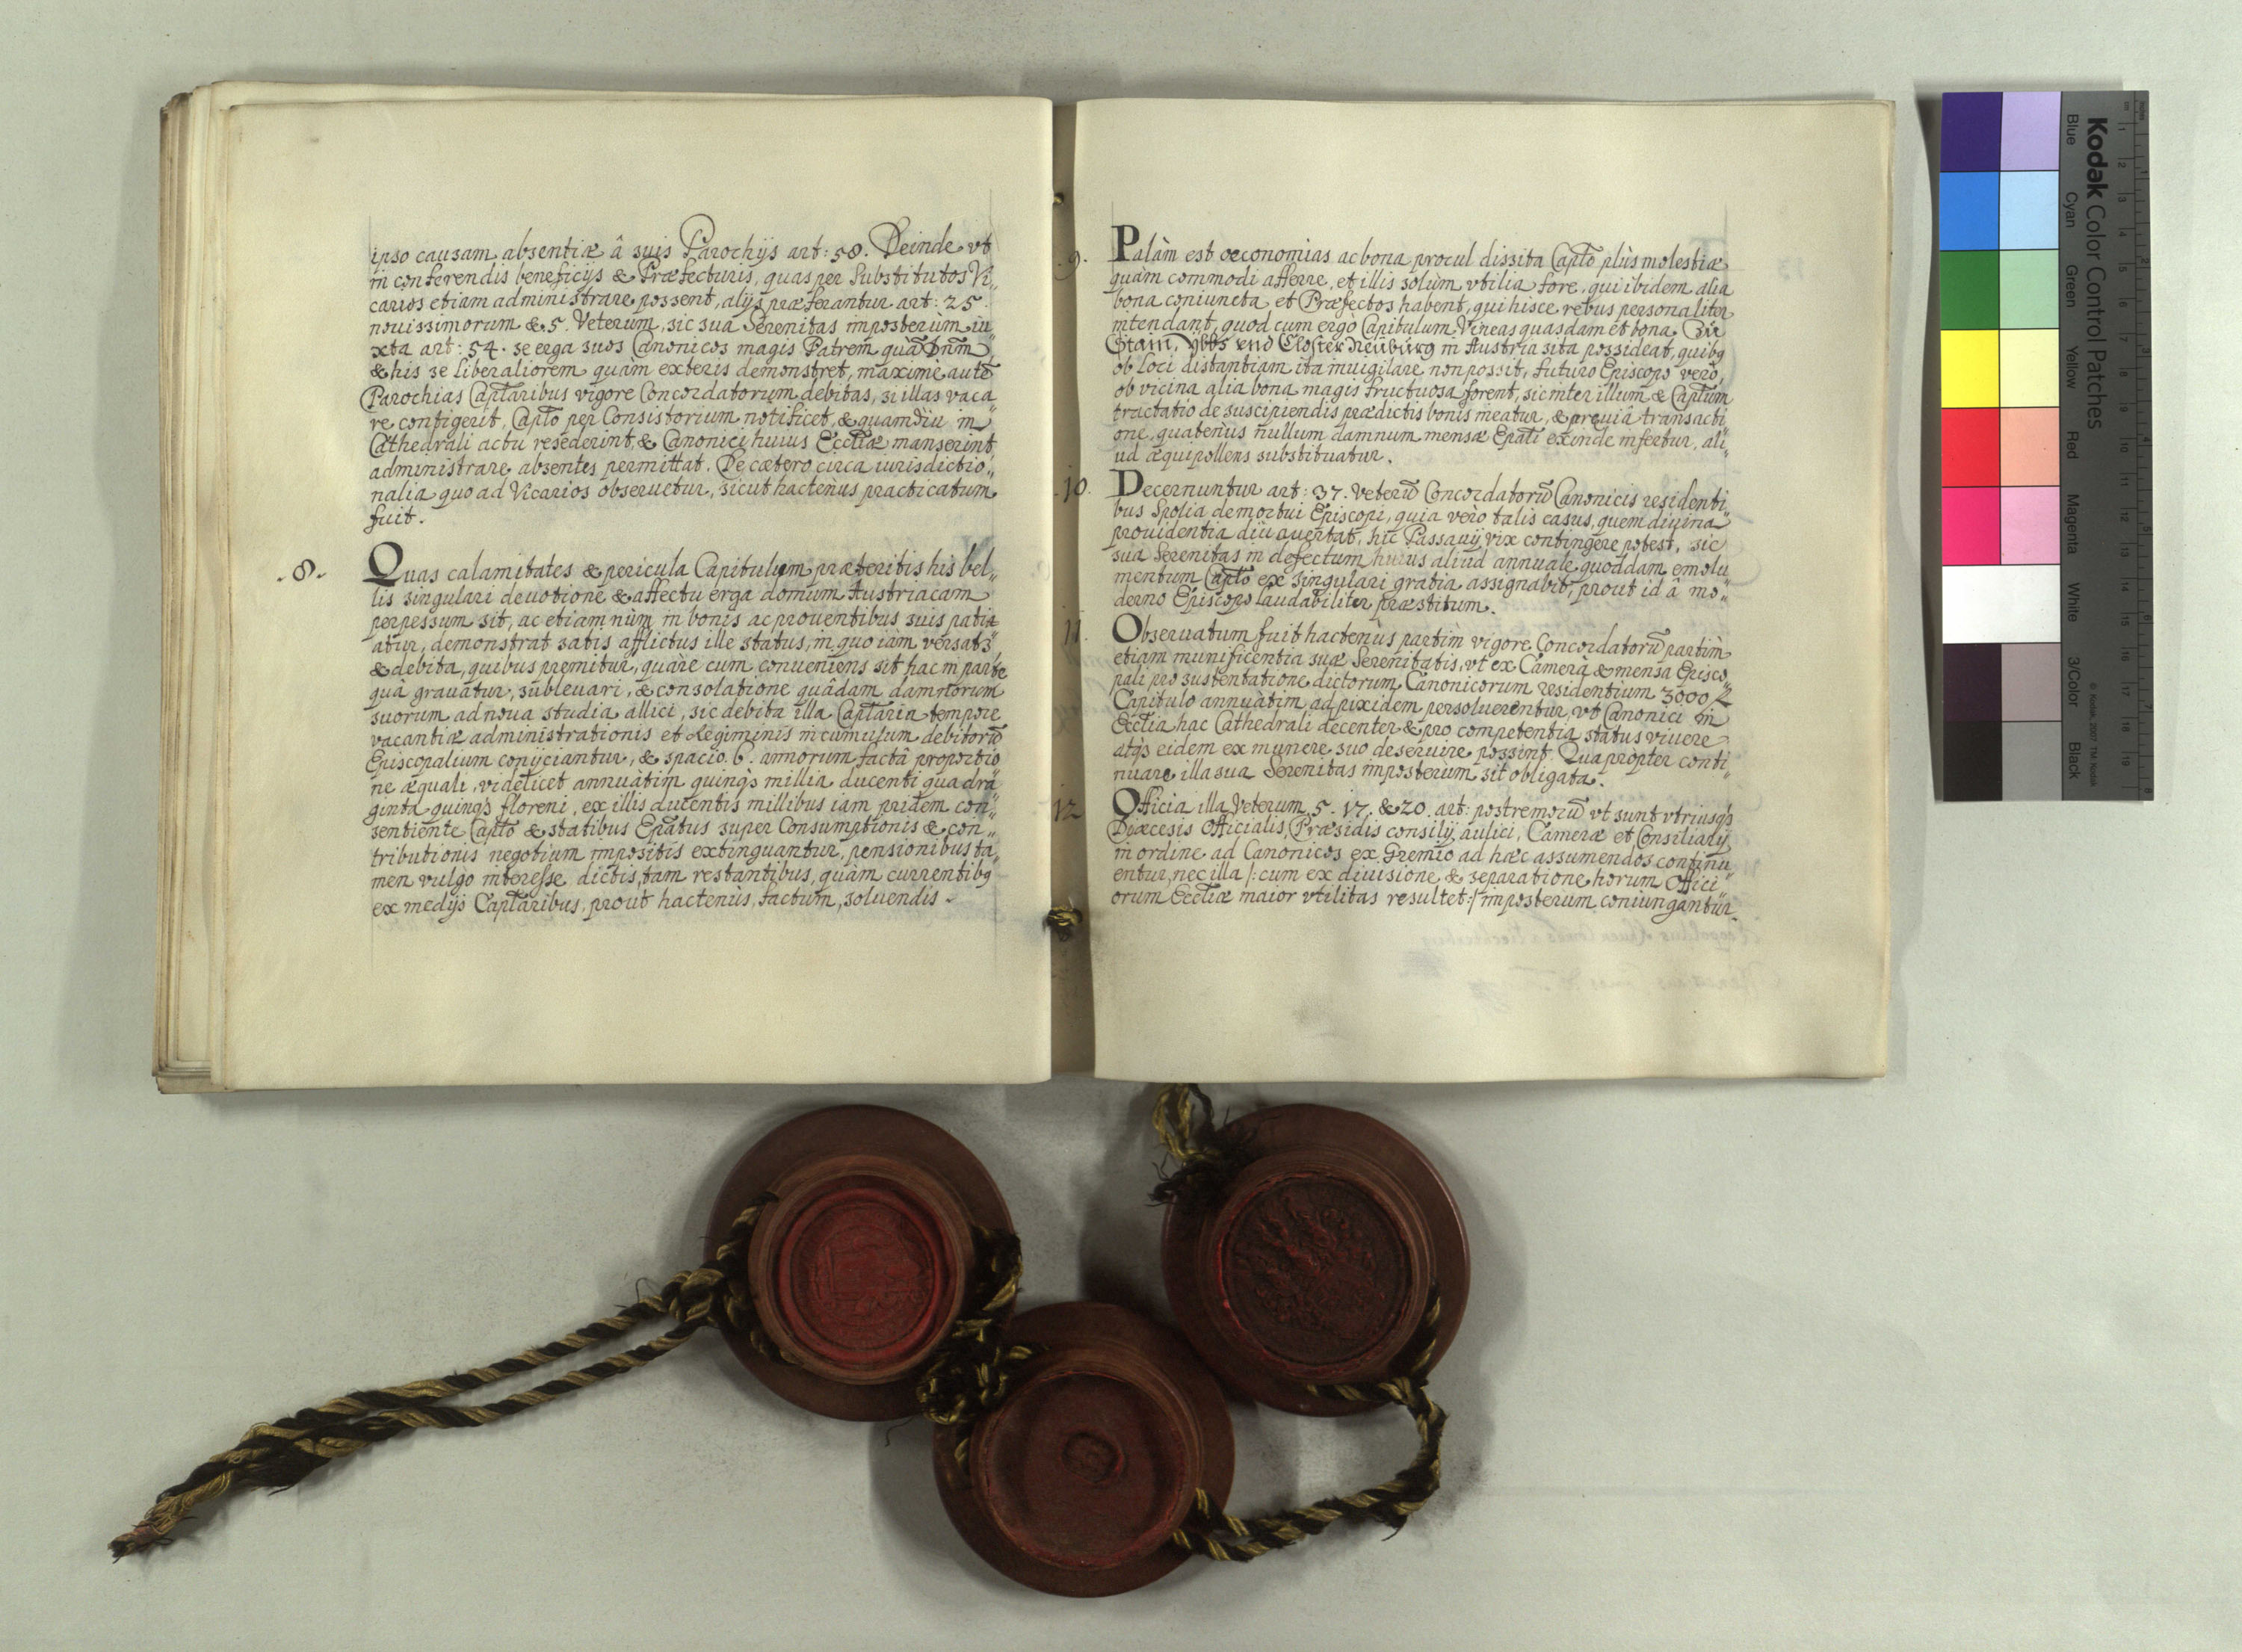 ipso causam absentiæ â suis Parochijs art: 58. Deinde vt
in conferendis beneficijs & Præfecturis, quas per Substitutos Vi„
carios etiam administrare possent, alijs præferantur art: 25.
nouissimorum & 5. Veterum, sic sua Serenitas imposterùm iu„
xta art: 54. se erga suos Canonicos magis Patrem quā Dnm̄,
& his se liberaliorem quàm exteris demonstret, maximè autē
Parochias Capt̄laribus vigore Concordatorum debitas, si illas vaca„
re contigerit, Capt̄o per Consistorium notificet, & quamdiu in
Cathedrali actu resederint, & Canonici huius Eccl̄iæ manserint,
administrare absentes permittat. De cætero circa iurisdictio„
nalia quo ad Vicarios obseruetur, sicut hactenùs practicatum
fuit.
.8. Quas calamitates & pericula Capitulum præteritis his bel„
lis singulari deuotione & affectu erga domum Austriacam
perpessum sit, ac etiam nùm in bonis ac prouentibus suis pati„
atur, demonstrat satis afflictus ille status, in quo iam versat᷒,
& debita, quibus premitur, quare cum conueniens sit hac in parte
quà grauatur, subleuari, & consolatione quâdam damnorum
suorum ad noua studia allici, sic debita illa Capt̄laria tempore
vacantiæ administrationis et Regiminis in cumulum debitorū
Episcopalium conijciantur, & spacio 6. annorum factâ proportio„
ne æquali, videlicet annuàtim quinq᷒ millia ducenti quadra„
ginta quinq᷒ floreni, ex illis ducentis millibus iam pridem con„
sentiente Capt̄o & statibus Epātus super Consumptionis & con„
tributionis negotium impositis extinguantur, pensionibus ta„
men vulgo interesse dictis, tam restantibus, quàm currentibꝫ
ex medijs Capt̄laribus, prout hactenùs, factum, soluendis.
.9. Palàm est oeconomias ac bona procul dissita Capt̄o plùs molestiæ
quàm commodi afferre, et illis solùm vtilia fore, qui ibidem alia
bona coniuncta et Præfectos habent, qui hisce rebus personaliter
intendant, quod cum ergò Capitulum Vineas quasdam et bona Zu
Stain, Ybbs vnd Closter Neüburg in Austria sita possideat, quibꝫ
ob loci distantiam ita inuigilare non possit, futuro Episcopo verò,
ob vicina alia bona magis fructuosa forent, sic inter illum & Capt̄lum
tractatio de suscipiendis prædictis bonis ineatur, & preuiâ transacti„
one, quatenùs nullum damnum mensæ Ep̄ali exinde infertur, ali„
ud æquipollens substituatur.
.10. Decernuntur art: 37. Veterū Concordatorū Canonicis residenti„
bus Spolia demortui Episcopi, quia verò talis casus, quem diuina
prouidentia diu auertat, hic Passauij vix contingere potest, sic
sua Serenitas in defectum huius aliud annuale quoddam emolu„
mentum Capt̄o ex singulari gratia assignabit, prout id â mo„
derno Episcopo laudabiliter præstitum.
11. Obseruatum fuit hactenùs partìm vigore Concordatorū partìm
etiam munificentia suæ Serenitatis, vt ex Camerà & mensa Episco„
pali pro sustentatione dictorum Canonicorum residentium 3000 fl
Capitulo annuàtim ad pixidem persoluerentur, vt Canonici in
Eccl̄ia hac Cathedrali decenter & pro competentia status viuere
atq᷒ eidem ex munere suo deseruire possint. Quapropter conti„
nuare illa sua Serenitas imposterum sit obligata.
12 Officia illa Veterum 5. 17. & 20. art: postremorū vt sunt vtriusq᷒
Diœcesis Officialis, Præsidis consilij aulici, Cameræ et Consiliarij
in ordine ad Canonicos ex Gremio ad hæc assumendos continu„
entur, nec illa /: cum ex diuisione & separatione horum Offici„
orum Eccl̄iæ maior vtilitas resultet :/ imposterum coniungantur.
Kodak Color Control Patches
Blue Cyan Green Yellow Red Magenta White 3/Color Black
© Kodak, 2007 TM: Kodak